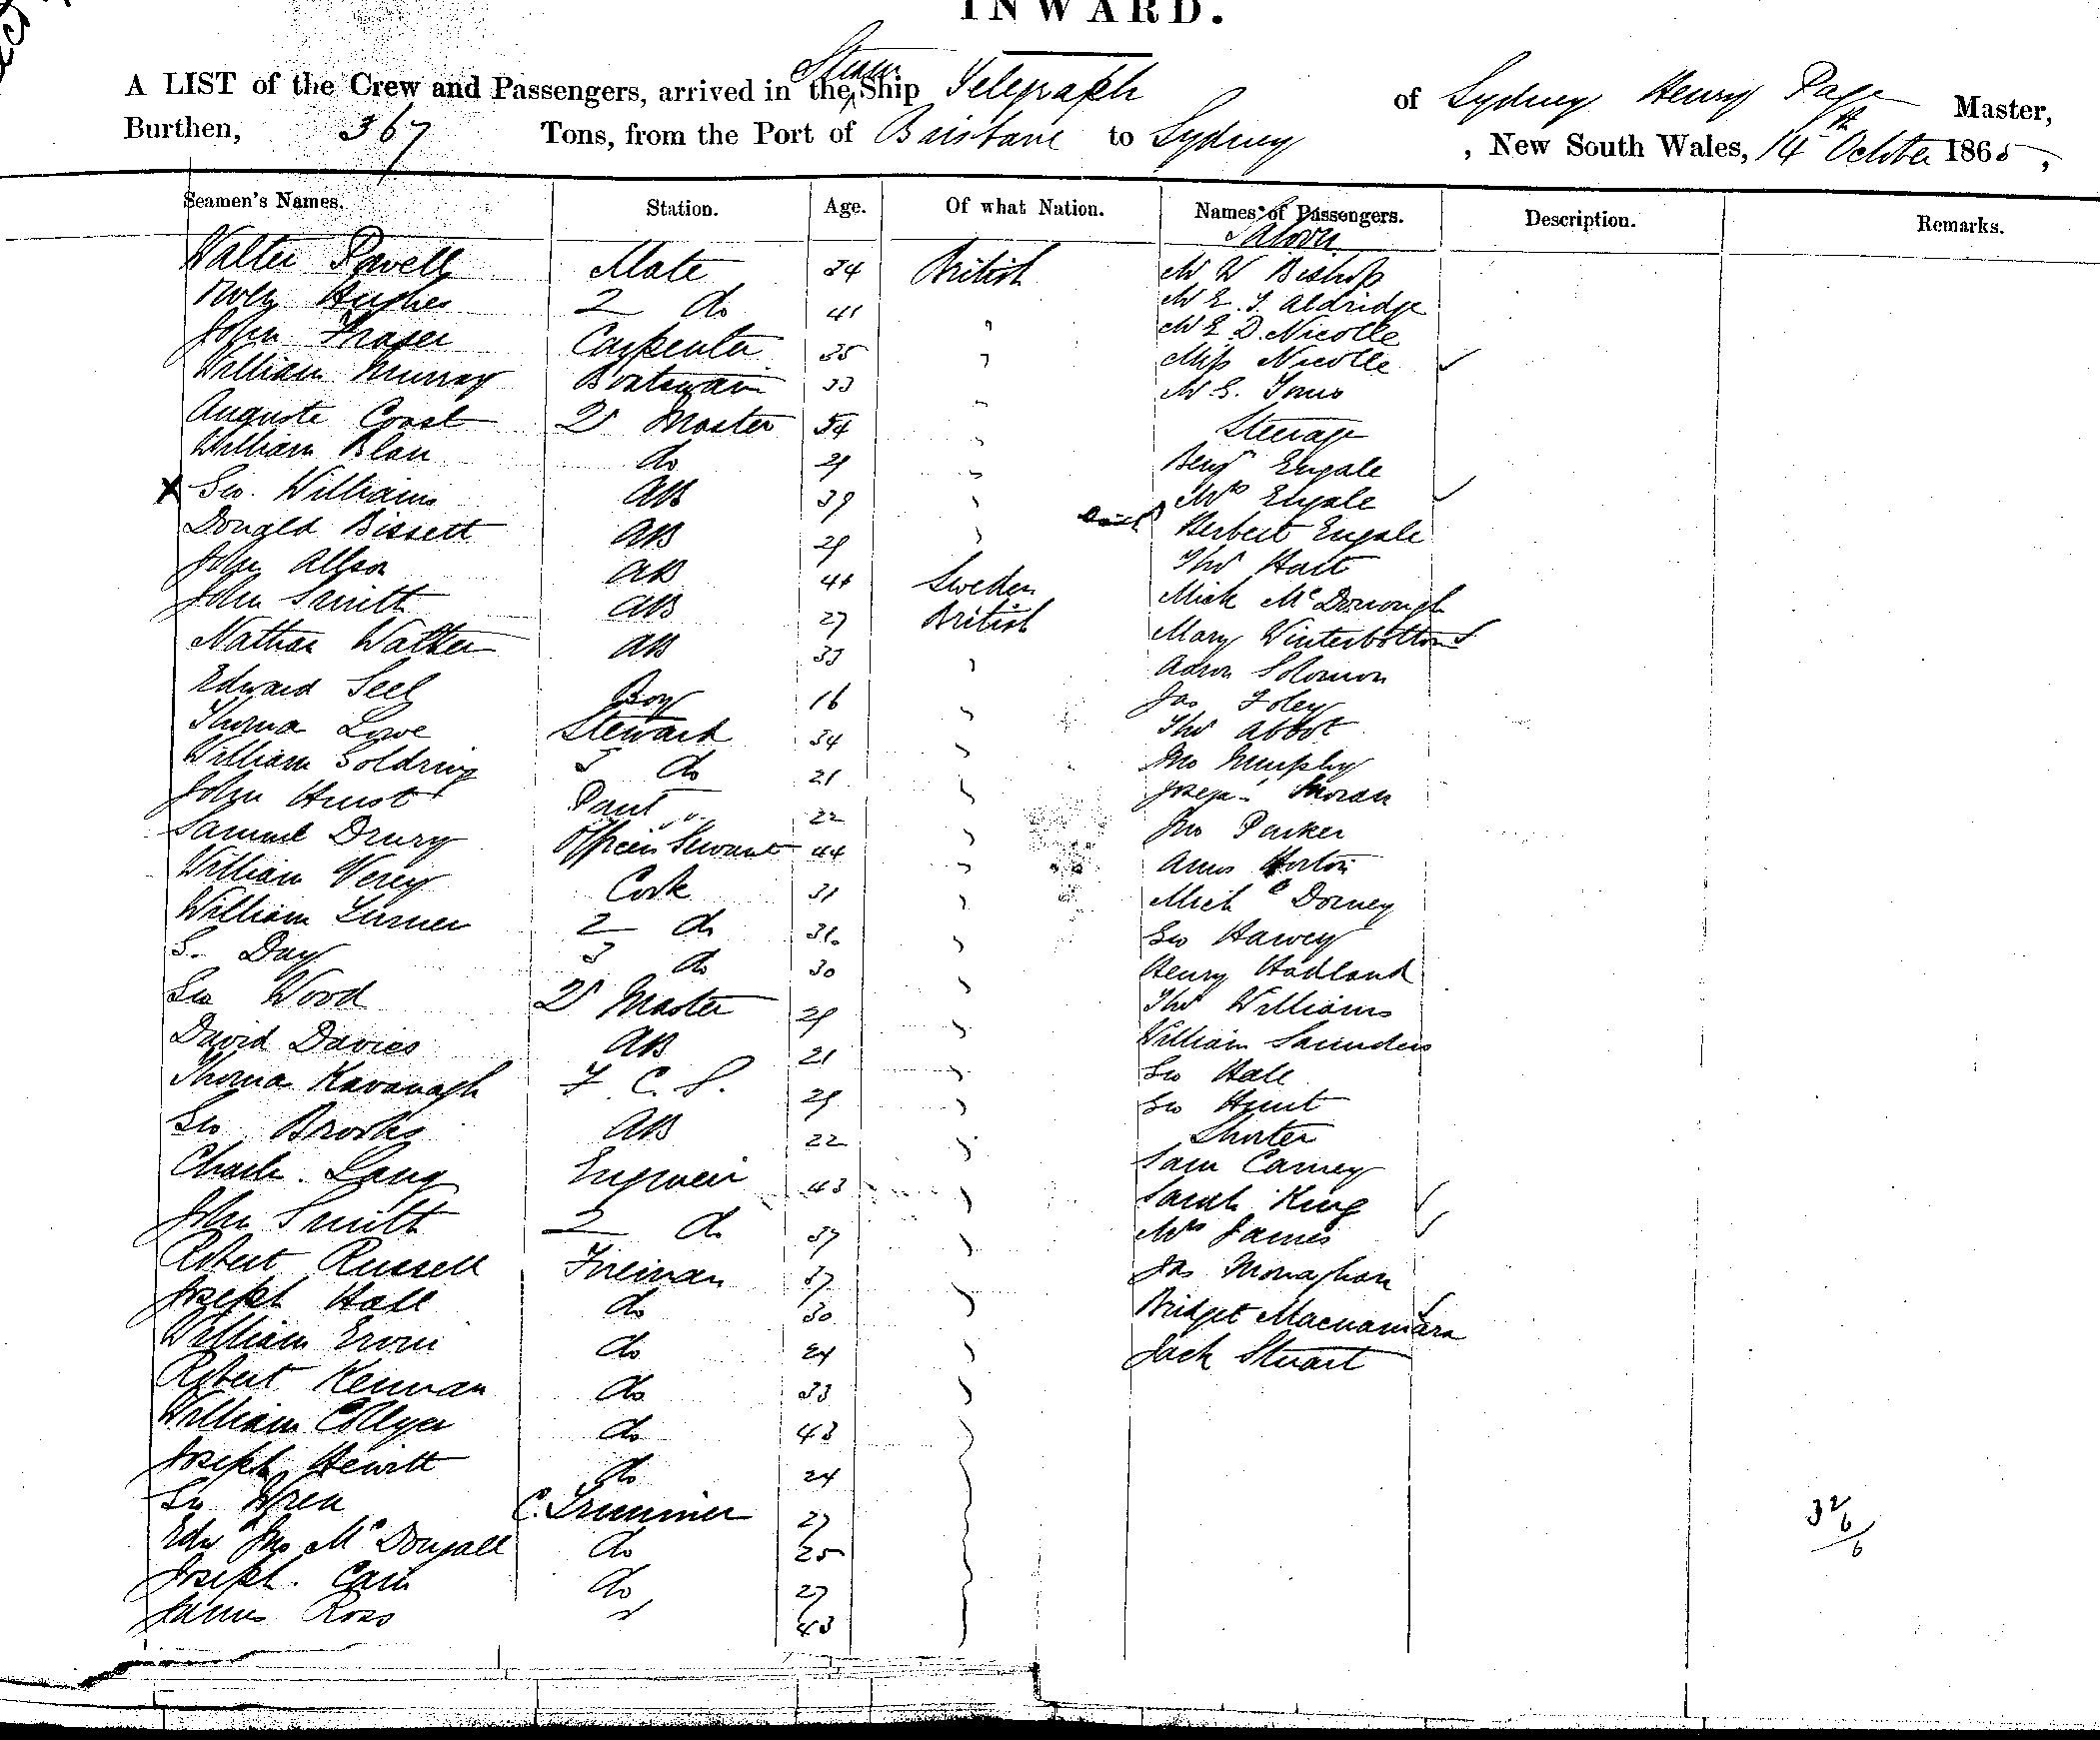 INWARD.
A LIST of the Crew and Passengers, arrived in the Steam Ship Telegraph of Sydney Henry Page Master,
Burthen, 367 Tons, from the Port of Brisbane to Sydney, New South Wales, 14th October 1865,
Seamen's Names. Station. Age. Of what Nation. Names of Passengers. Description. Remarks.
Saloon
Walter Powell Mate 34 British Mr W Bishop
Hughes 2 do 41 " Mr E. T. Aldridge
John Fraser Carpenter 35 " Mr E. D. Nicolle
William Murray Boatswain 33 " Miss Nicolle
Auguste Coast Qr Master 54 " Mr E.
William Blau do 29 " Steerage
X Geo. Williams AB 39 " Benj Engale
Donald Bissett AB 29 " Mrs Engale
John Allson AB 44 Sweden Herbert Engale
John Smith AB 27 British Thos Hart
Nathan Walker AB 33 " Mick McDonough
Edward Seel Boy 16 " Mary Winterbottom
Thomas Lowe Steward 34 " Aaron Solomon
William Soldring S do 21 " Jas Foley
John Hurst Pant " 22 " Thos Abbot
Samuel Drury Officers Servant 44 " Jno Murphy
William Verey Cook 31 " Joseph Moran
William Turner 2 do 31 " Jno Parker
S. Day 3 do 30 " Amos Horton
Geo Wood Qr Master 29 " Mich Dorney
David Davies AB 21 " Geo Harvey
Thomas Kavanagh F. C. S. 29 " Henry Hadland
Geo Brooks AB 22 " Thos Williams
Charles Lang Engineer 43 " William Saunders
John Smith 2 do 37 " Geo Hall
Robert Russell Fireman 37 " Geo Hunt
Joseph Hall do 30 " Shorter
William Ervin do 24 " Sam Carney
Robert Kernan do 33 " Sarah King
William Collyer do 43 " Mrs James
Joseph Hewitt do 24 " Jas Monaghan
Geo Wren C. Trimmer 27 Bridget Macnamara
Edw Jno McDougall do 25 Jack Stuart
Joseph Cain do 27
James Ross " 43
32/6
6